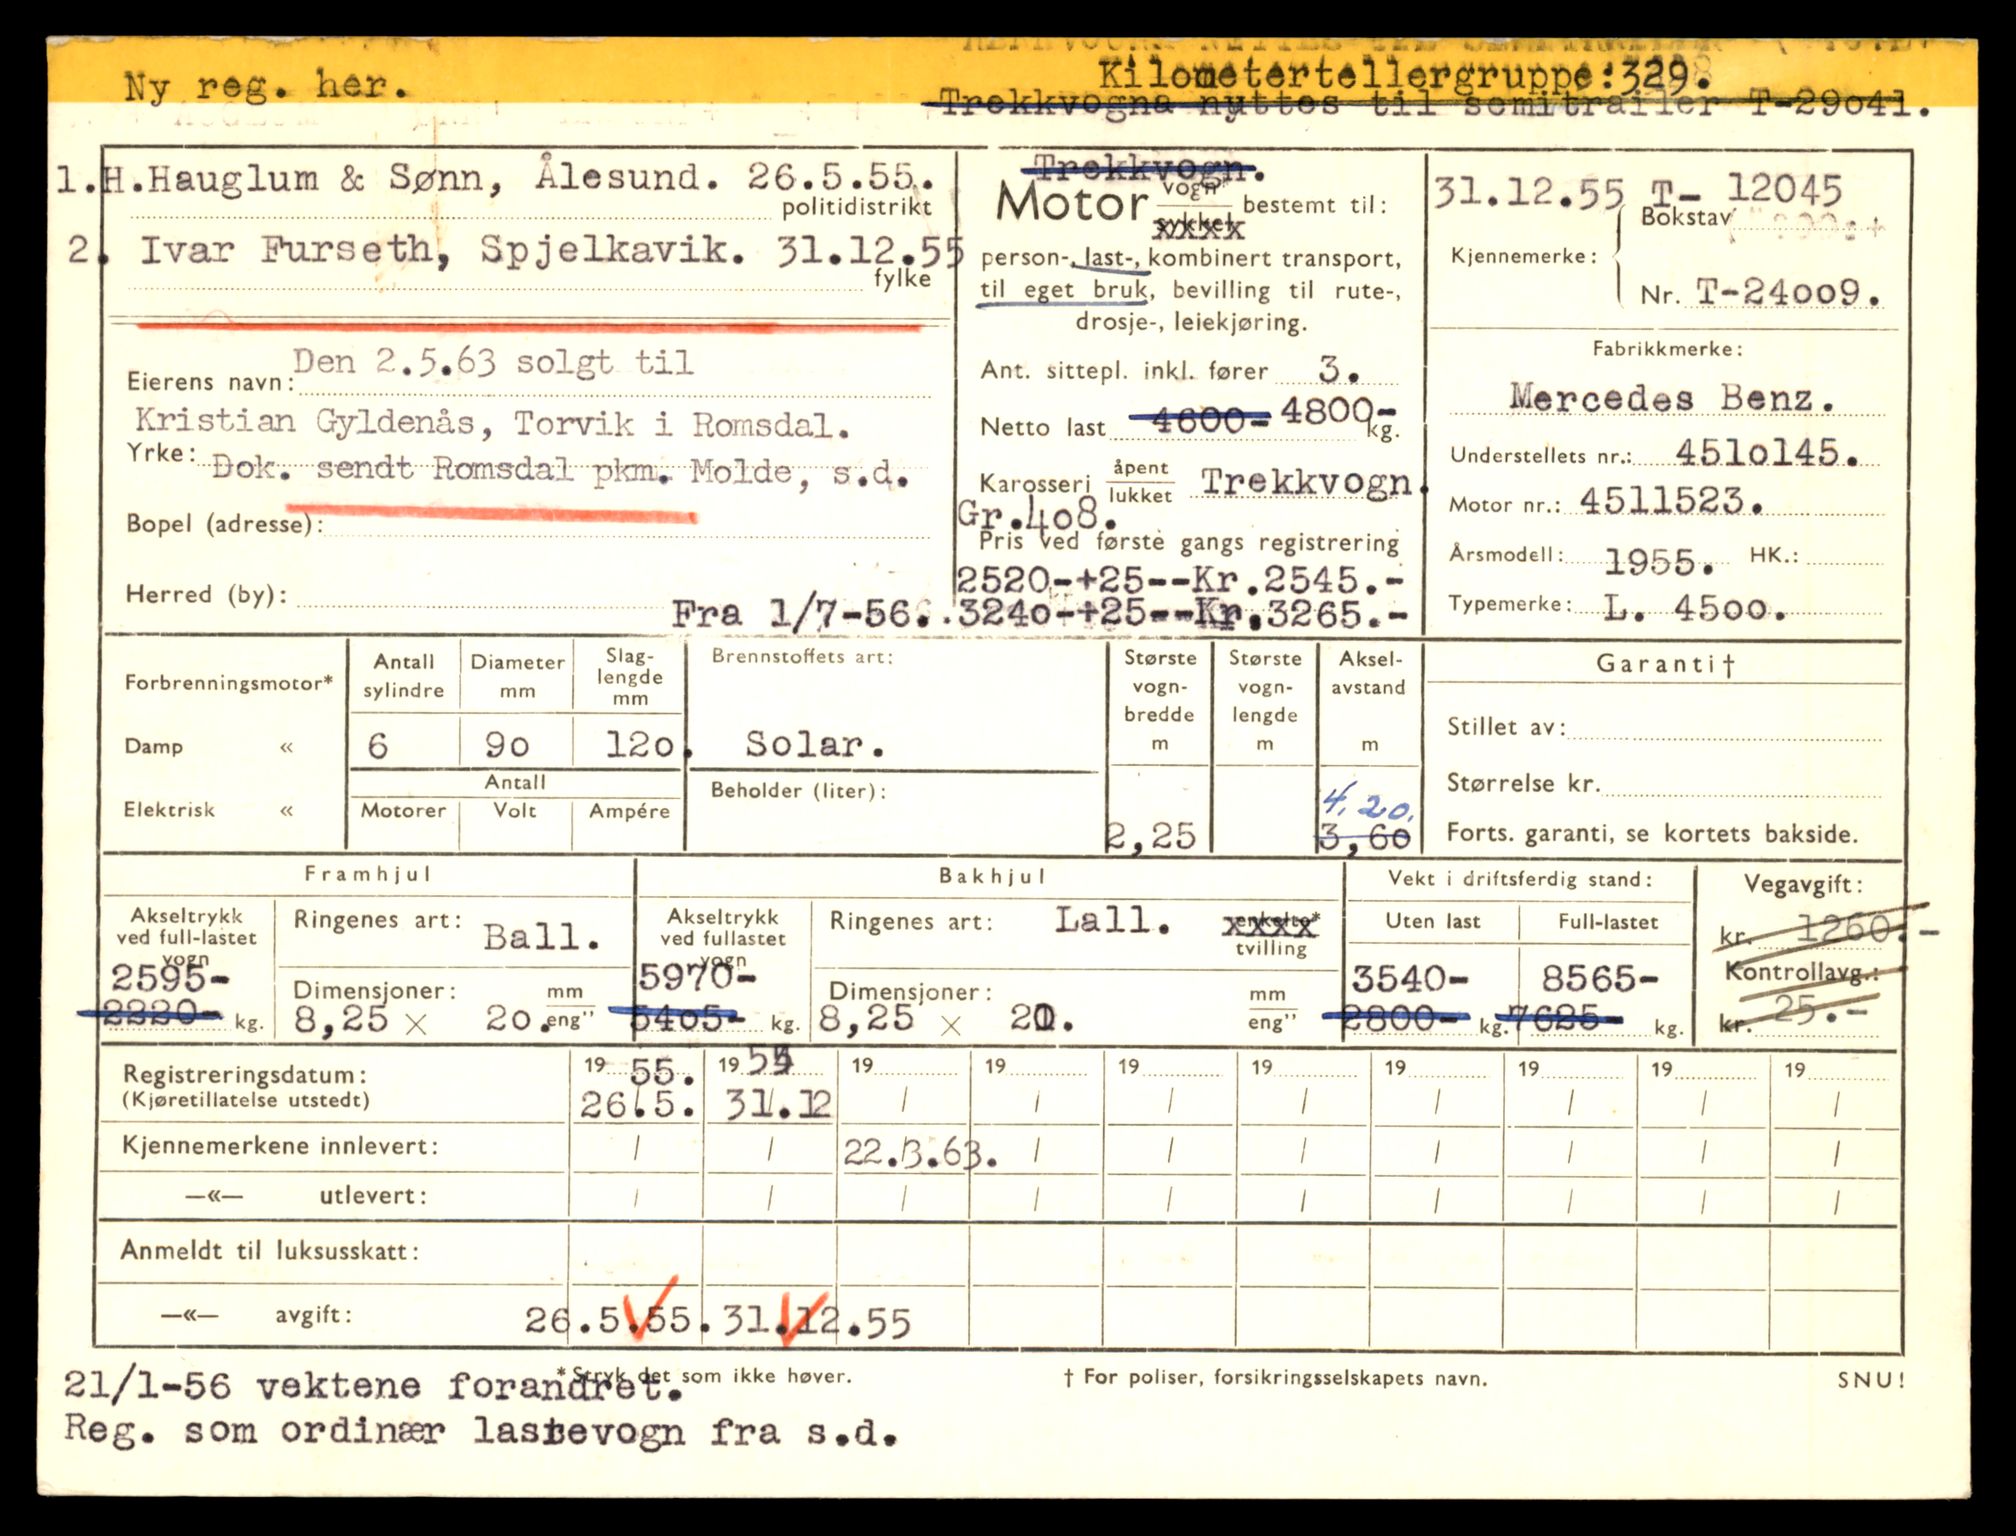 Ny reg. her.
Kilometertellergruppe:329.
Trekkvogna nyttes til semitrailer T-29041.
1.H.Hauglum & Sønn, Ålesund. 26.5.55.
politidistrikt
2. Ivar Furseth, Spjelkavik. 31.12.55
fylke
Eierens navn: Den 2.5.63 solgt til
Kristian Gyldenås, Torvik i Romsdal.
Yrke: Dok. sendt Romsdal pkm. Molde, s.d.
Bopel (adresse):
Herred (by):
Trekkvogn.
Motor vogn* sykkel bestemt til:
person-, last-, kombinert transport,
til eget bruk, bevilling til rute-,
drosje-, leiekjøring.
Ant. sittepl. inkl. fører 3.
Netto last 4600- 4800- kg.
Karosseri åpent lukket Trekkvogn.
Gr.408.
Pris ved første gangs registrering
2520-+25--Kr.2545.-
Fra 1/7-56. 3240-+25--Kr.3265.-
31.12.55 T- 12045
Bokstav
Kjennemerke:
Nr. T-24009.
Fabrikkmerke:
Mercedes Benz.
Understellets nr.: 4510145.
Motor nr.: 4511523.
Årsmodell: 1955. HK.:
Typemerke: L. 4500.
Forbrenningsmotor*
Damp «
Elektrisk «
Antall sylindre
Diameter mm
Slag-lengde mm
6 90 120.
Antall
Motorer Volt Ampére
Brennstoffets art:
Solar.
Beholder (liter):
Største vogn-bredde m
2,25
Største vogn-lengde m
Aksel-avstand m
4.20.
3,60
Garanti†
Stillet av:
Størrelse kr.
Forts. garanti, se kortets bakside.
Framhjul
Akseltrykk ved full-lastet vogn
2595-
2220- kg.
Ringenes art: Ball.
Dimensjoner: mm
8,25 × 20. eng"
Bakhjul
Akseltrykk ved fullastet vogn
5970-
5405- kg.
Ringenes art: Lall. enkelte* tvilling
Dimensjoner: mm
8,25 × 20. eng"
Vekt i driftsferdig stand:
Uten last Full-lastet
3540- 8565-
2800- kg. 7625- kg.
Vegavgift:
kr. 1260.-
Kontrollavg.:
kr. 25.-
Registreringsdatum: 19 55. 19 55 19 19 19 19 19 19 19 19
(Kjøretillatelse utstedt) 26.5. 31.12 / / / / / / / /
Kjennemerkene innlevert: / / 22.3.63. / / / / / / /
—«— utlevert: / / / / / / / / / /
Anmeldt til luksusskatt:
—«— avgift: 26.5.55. 31.12.55
*Stryk det som ikke høver.
† For poliser, forsikringsselskapets navn.
SNU!
21/1-56 vektene forandret.
Reg. som ordinær lastevogn fra s.d.